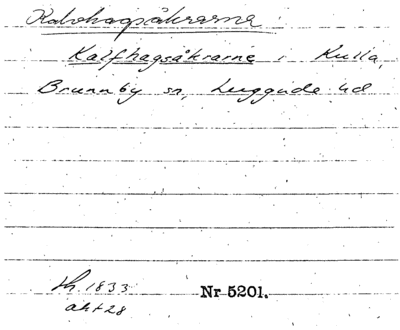 Kalvhagsåkrarna
Kalfhagsåkrarne i Kulla,
Brunnby sn, Luggude hd
Sh. 1833
akt 28
Nr 5201.